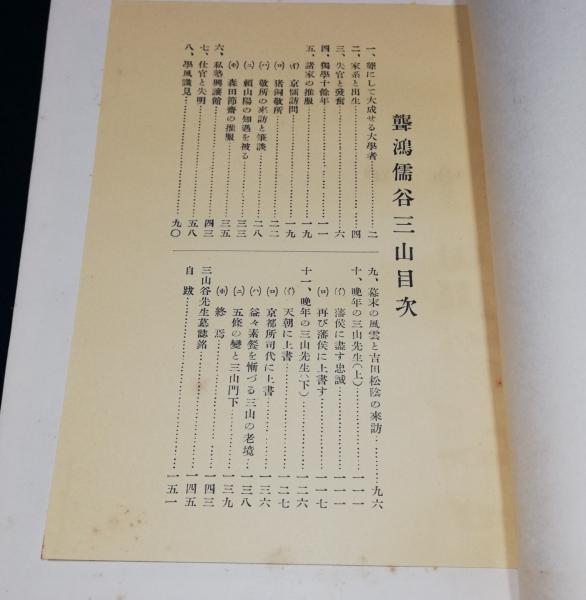 聾鴻儒谷三山目次
一、聾にして大成せる大學者…………二
二、家系と出生…………四
三、失官と發奮…………六
四、獨學十餘年…………一一
五、諸家の推服…………一九
(イ) 京儒訪問…………一九
(ロ) 猪飼敬所…………二二
(ハ) 敬所の來訪と筆談…………二八
(ニ) 賴山陽の知遇を被る…………三三
(ホ) 森田節齋の推服…………三五
六、私塾興讓館…………四三
七、仕官と失明…………五八
八、學風識見…………九〇
九、幕末の風雲と吉田松陰の來訪…………九六
十、晩年の三山先生(上)…………一一一
(イ) 藩侯に盡す忠誠…………一一一
(ロ) 再び藩侯に上書す…………一一七
十一、晩年の三山先生(下)…………一二六
(イ) 天朝に上書…………一二七
(ロ) 京都所司代に上書…………一三六
(ハ) 益々素餐を慚づる三山の老境…………一三八
(ニ) 五條の變と三山門下…………一三九
(ホ) 終焉…………一四三
三山谷先生墓誌銘…………一四五
自跋…………一五一